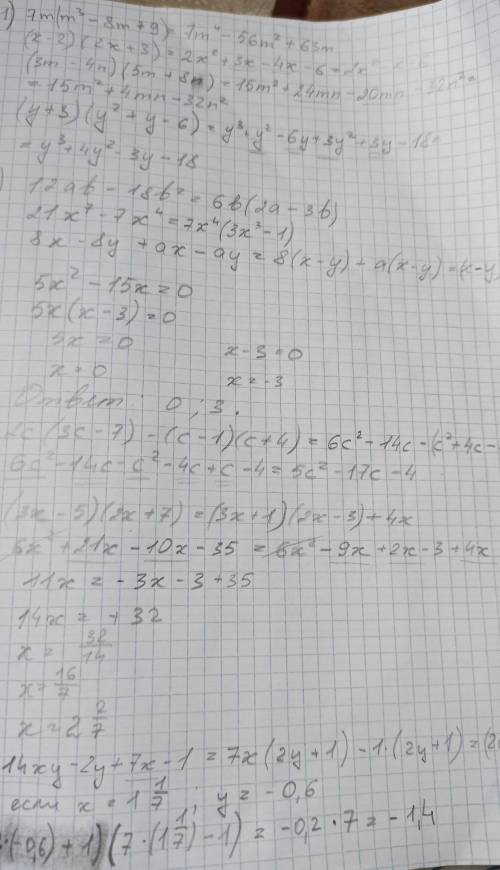 1) 7m(m³ - 8m + 9) = 7m⁴ - 56m² + 63m
(x-2)(2x+3) = 2x² + 3x - 4x - 6 = 2x² - x - 6
(3m - 4n)(5m + 8n) = 15m² + 24mn - 20mn - 32n² =
= 15m² + 4mn - 32n²
(y+3)(y² + y - 6) = y³ + y² - 6y + 3y² + 3y - 18 =
= y³ + 4y² - 3y - 18
) 12ab - 18b² = 6b(2a - 3b)
21x⁷ - 7x⁴ = 7x⁴(3x³ - 1)
8x - 8y + ax - ay = 8(x-y) + a(x-y) = (x-y
5x² - 15x = 0
5x(x-3) = 0
5x = 0 x-3 = 0
x = 0 x = -3
Ответ: 0; 3.
2c(3c-7) - (c-1)(c+4) = 6c² - 14c - (c² + 4c -
6c² - 14c - c² - 4c + c - 4 = 5c² - 17c - 4
(3x-5)(2x+7) = (3x+1)(2x-3) + 4x
6x² + 21x - 10x - 35 = 6x² - 9x + 2x - 3 + 4x
11x = -3x - 3 + 35
14x = +32
x = 32/14
x = 16/7
x = 2 2/7
14xy - 2y + 7x - 1 = 7x(2y+1) - 1·(2y+1) = (2
если x = 1 1/7; y = -0,6
·(-0,6) + 1)(7·(1 1/7) - 1) = -0,2·7 = -1,4